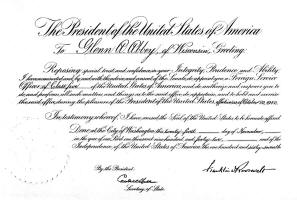 The President of the United States of America
To Glenn A. Abbey, of Wisconsin, Greeting:
Reposing special trust and confidence in your Integrity, Prudence and Ability
I have nominated and, by and with the advice and consent of the Senate, do appoint you a Foreign Service
Officer of Class five of the United States of America, and do authorize and empower you to
do and perform all such matters and things as to the said office do appertain, and to hold and exercise
the said office, during the pleasure of the President of the United States
In testimony whereof, I have caused the Seal of the United States to be hereunto affixed.
Done at the City of Washington this day of November,
in the year of our Lord one thousand nine hundred and forty and of the
Independence of the United States of America the one hundred and sixty
By the President:
Franklin D. Roosevelt
Secretary of State.